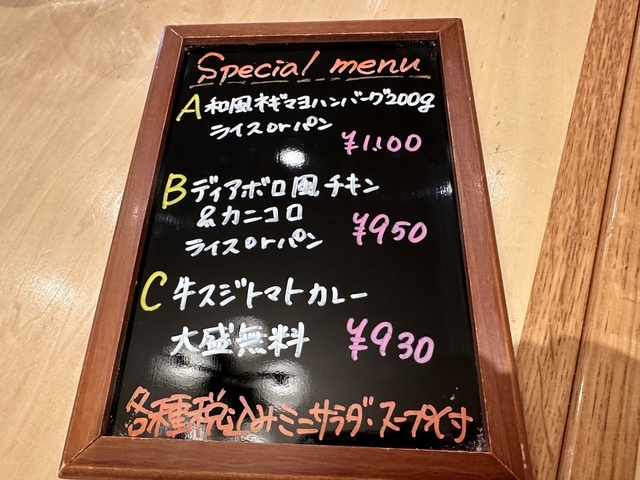 Special menu
A 和風ネギマヨハンバーグ200g
ライスorパン
¥1.100
B ディアボロ風チキン
&カニコロ
ライスorパン ¥950
C 牛スジトマトカレー
大盛無料 ¥930
各種税込みミニサラダ・スープ付